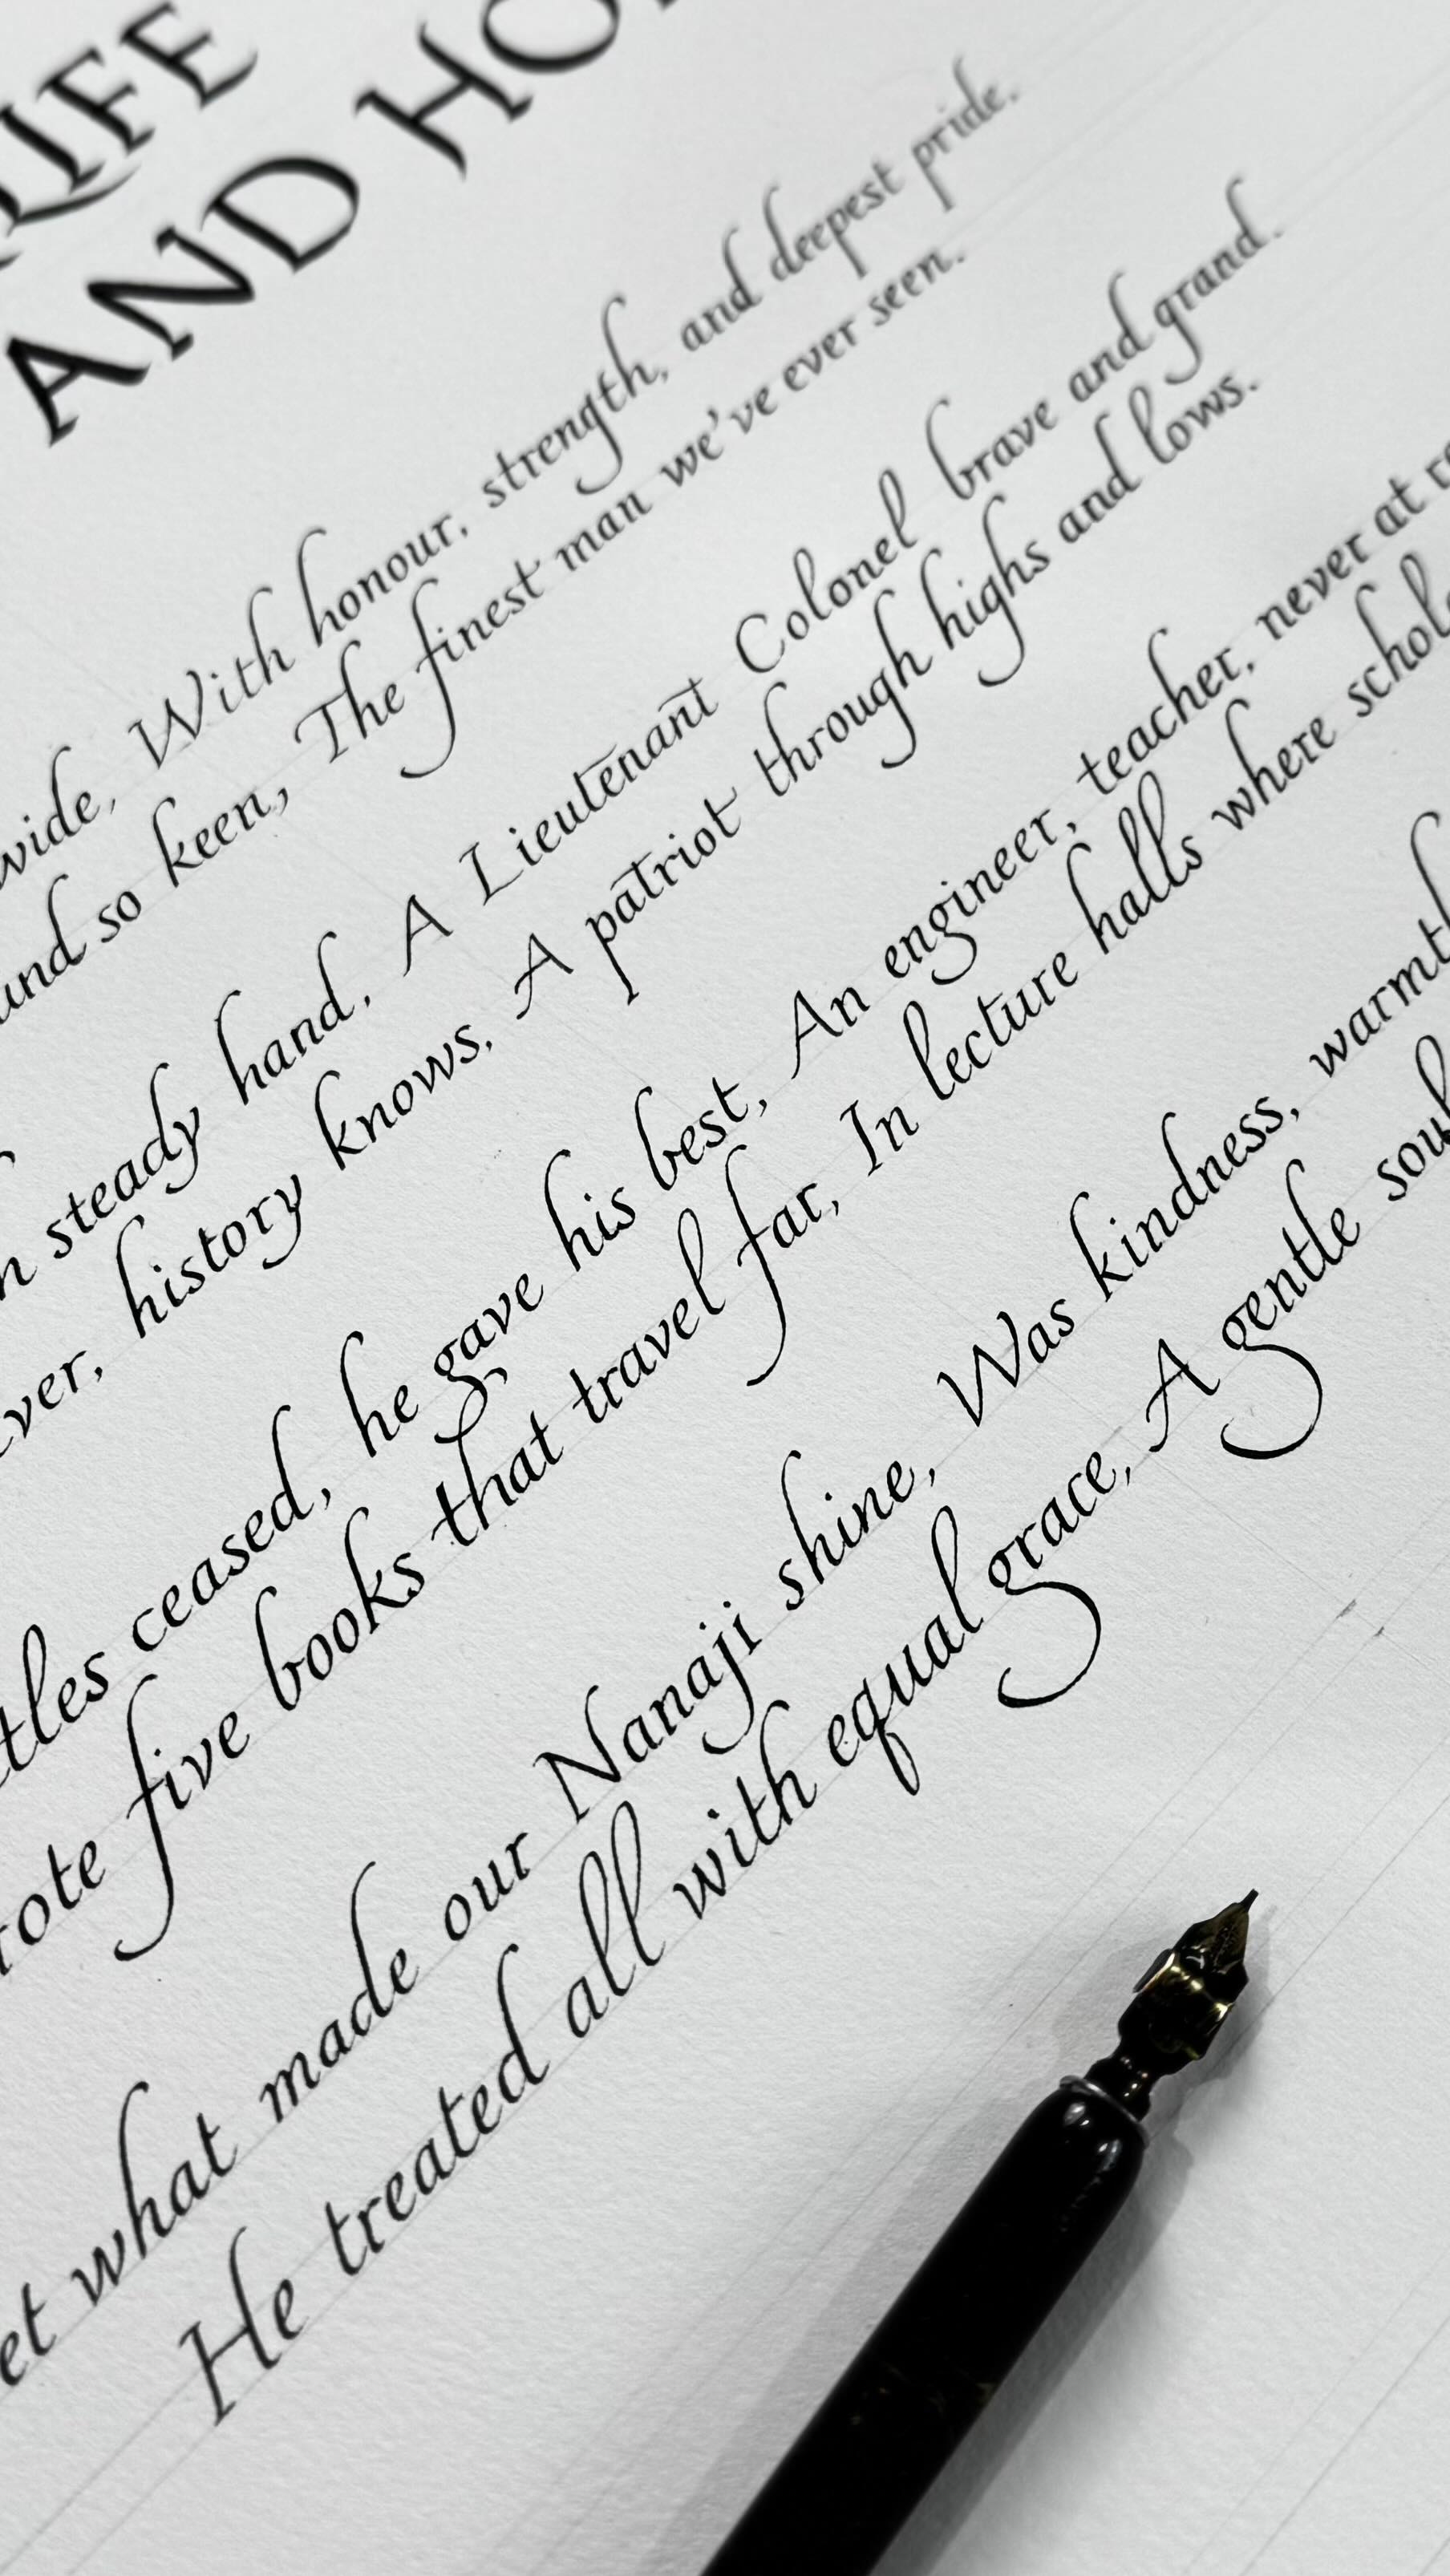 LIFE
AND
With honour, strength, and deepest pride.
so keen, The finest man we've ever seen.
steady hand, A Lieutenant Colonel brave and grand.
history knows, A patriot through highs and lows.
ceased, he gave his best, An engineer, teacher, never at
five books that travel far, In lecture halls where
what made our Nanaji shine, Was kindness,
He treated all with equal grace, A gentle